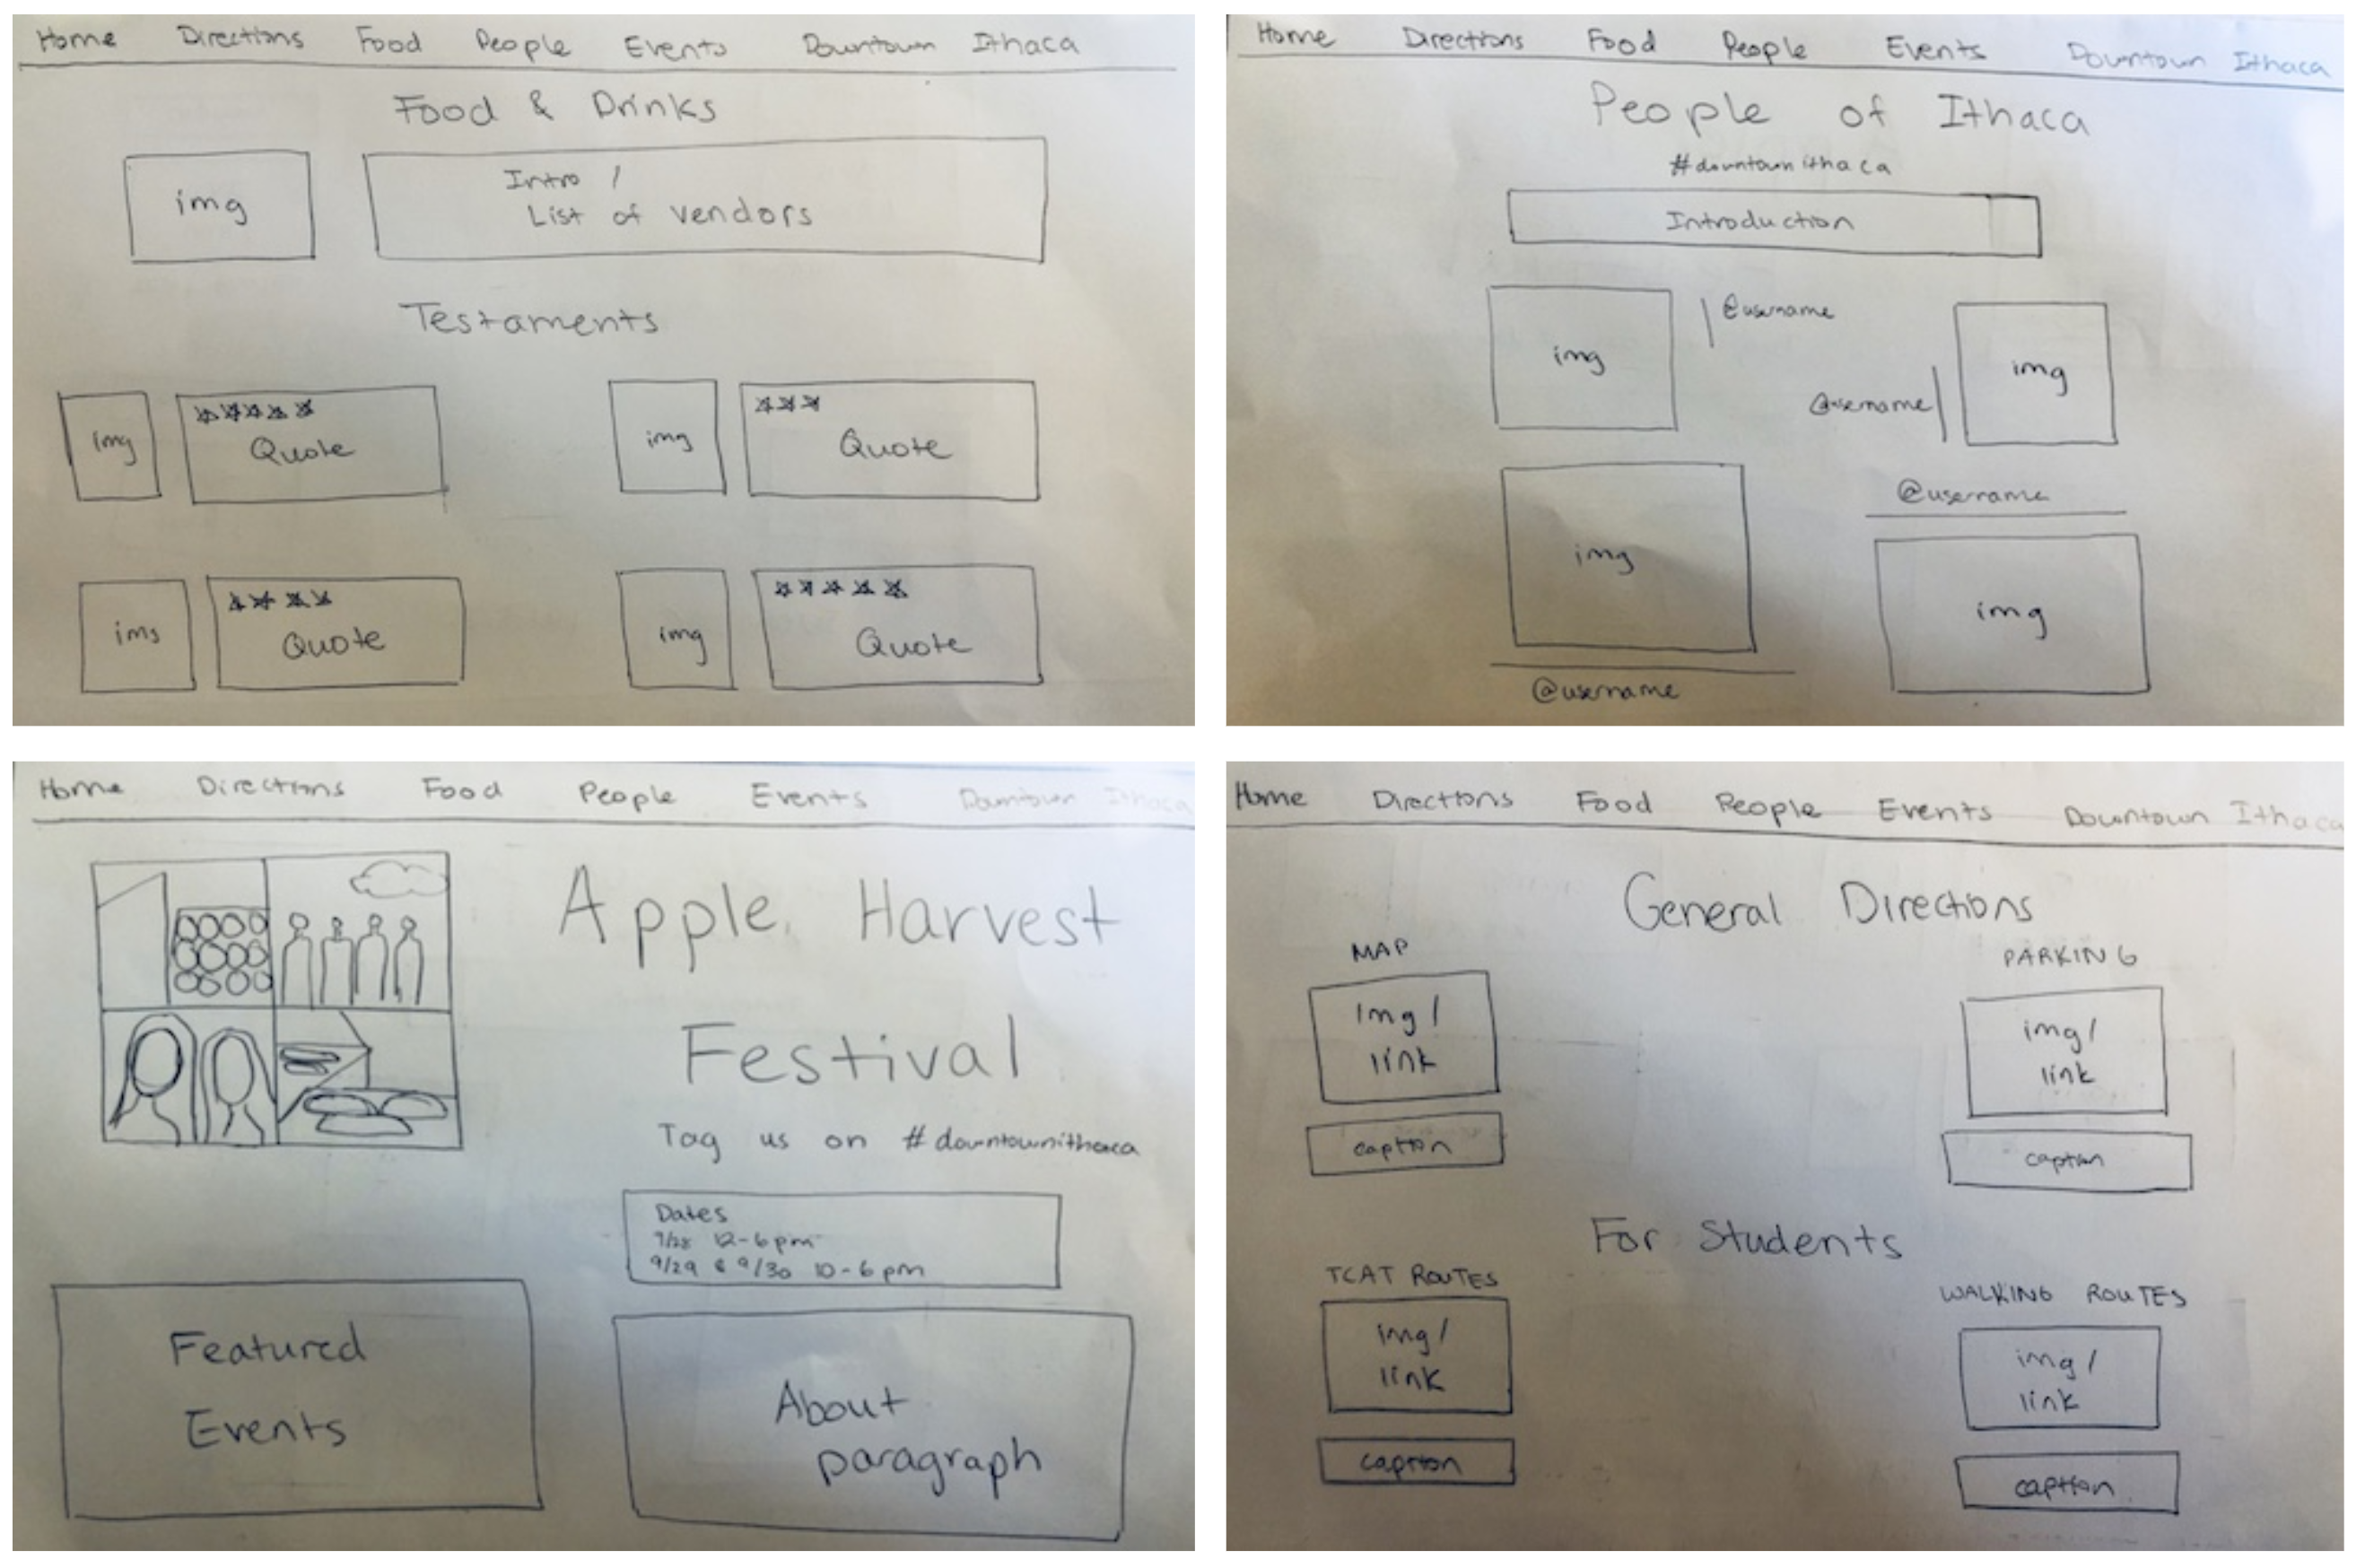 Home Directions Food People Events Downtown Ithaca
Food & Drinks
img
Intro /
List of vendors
Testaments
img
Quote
img
Quote
ims
Quote
img
Quote
Home Directions Food People Events Downtown Ithaca
People of Ithaca
#downtownithaca
Introduction
img
@username
@username
img
img
@username
@username
img
Home Directions Food People Events Downtown Ithaca
Apple Harvest
Festival
Tag us on #downtownithaca
Dates
9/28 12-6pm
9/29 & 9/30 10-6pm
Featured
Events
About
paragraph
Home Directions Food People Events Downtown Ithaca
General Directions
MAP
img/
link
caption
PARKING
img/
link
caption
For Students
TCAT ROUTES
img/
link
caption
WALKING ROUTES
img/
link
caption